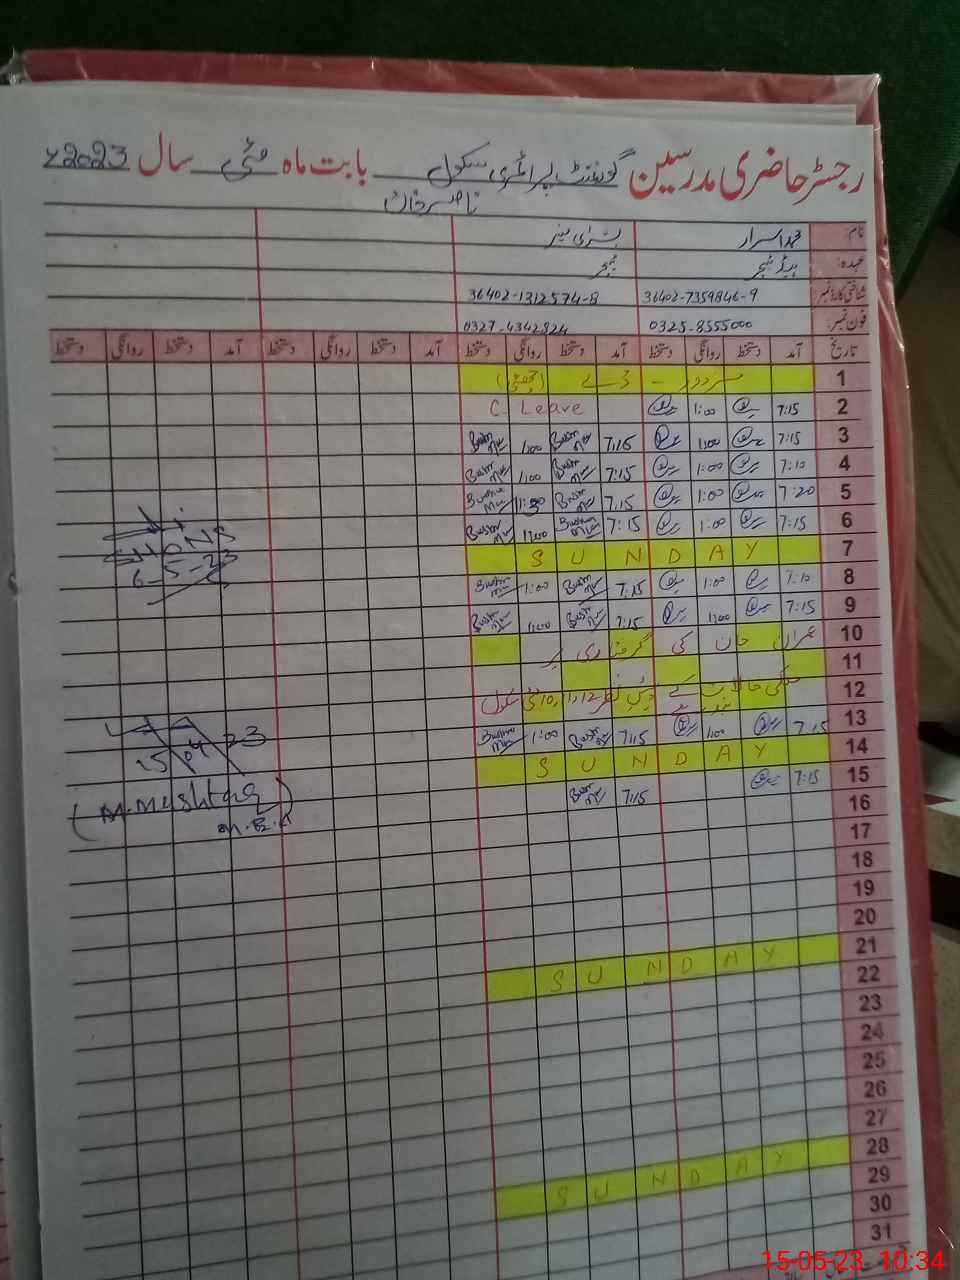 رجسٹر حاضری مدرسین گورنمنٹ پرائمری سکول بابت ماہ مئی سال 2023ء
ناصر خان
نام: محمد اسرار بشریٰ منیر
عہدہ: ہیڈ ٹیچر ٹیچر
شناختی کارڈ نمبر: 36402-7359846-9 36402-1312574-8
فون نمبر: 0325-8555000 0327-4342824
تاریخ آمد دستخط روانگی دستخط آمد دستخط روانگی دستخط آمد دستخط روانگی دستخط آمد دستخط روانگی دستخط
1 مزدور - ڈے (چھٹی)
2 7:15 1:00 C. Leave
3 7:15 1:00 7:15 1:00
4 7:10 1:00 7:15 1:00
5 7:20 1:00 7:15 1:00
6 7:15 1:00 7:15 1:00
7 SUNDAY
8 7:10 1:00 7:15 1:00
9 7:15 1:00 7:15 1:00
10 عمران خان کی گرفتاری پر
11 ملکی حالات کے پیش نظر 10، 11، 12 مئی سکول
12
13 7:15 1:00 7:15 1:00
14 SUNDAY
15 7:15 7:15
16
17
18
19
20
21 SUNDAY
22
23
24
25
26
27
28 SUNDAY
29
30
31
6-5-23
15 04 23
(M. Mushtaq)
15-05-23 10:34